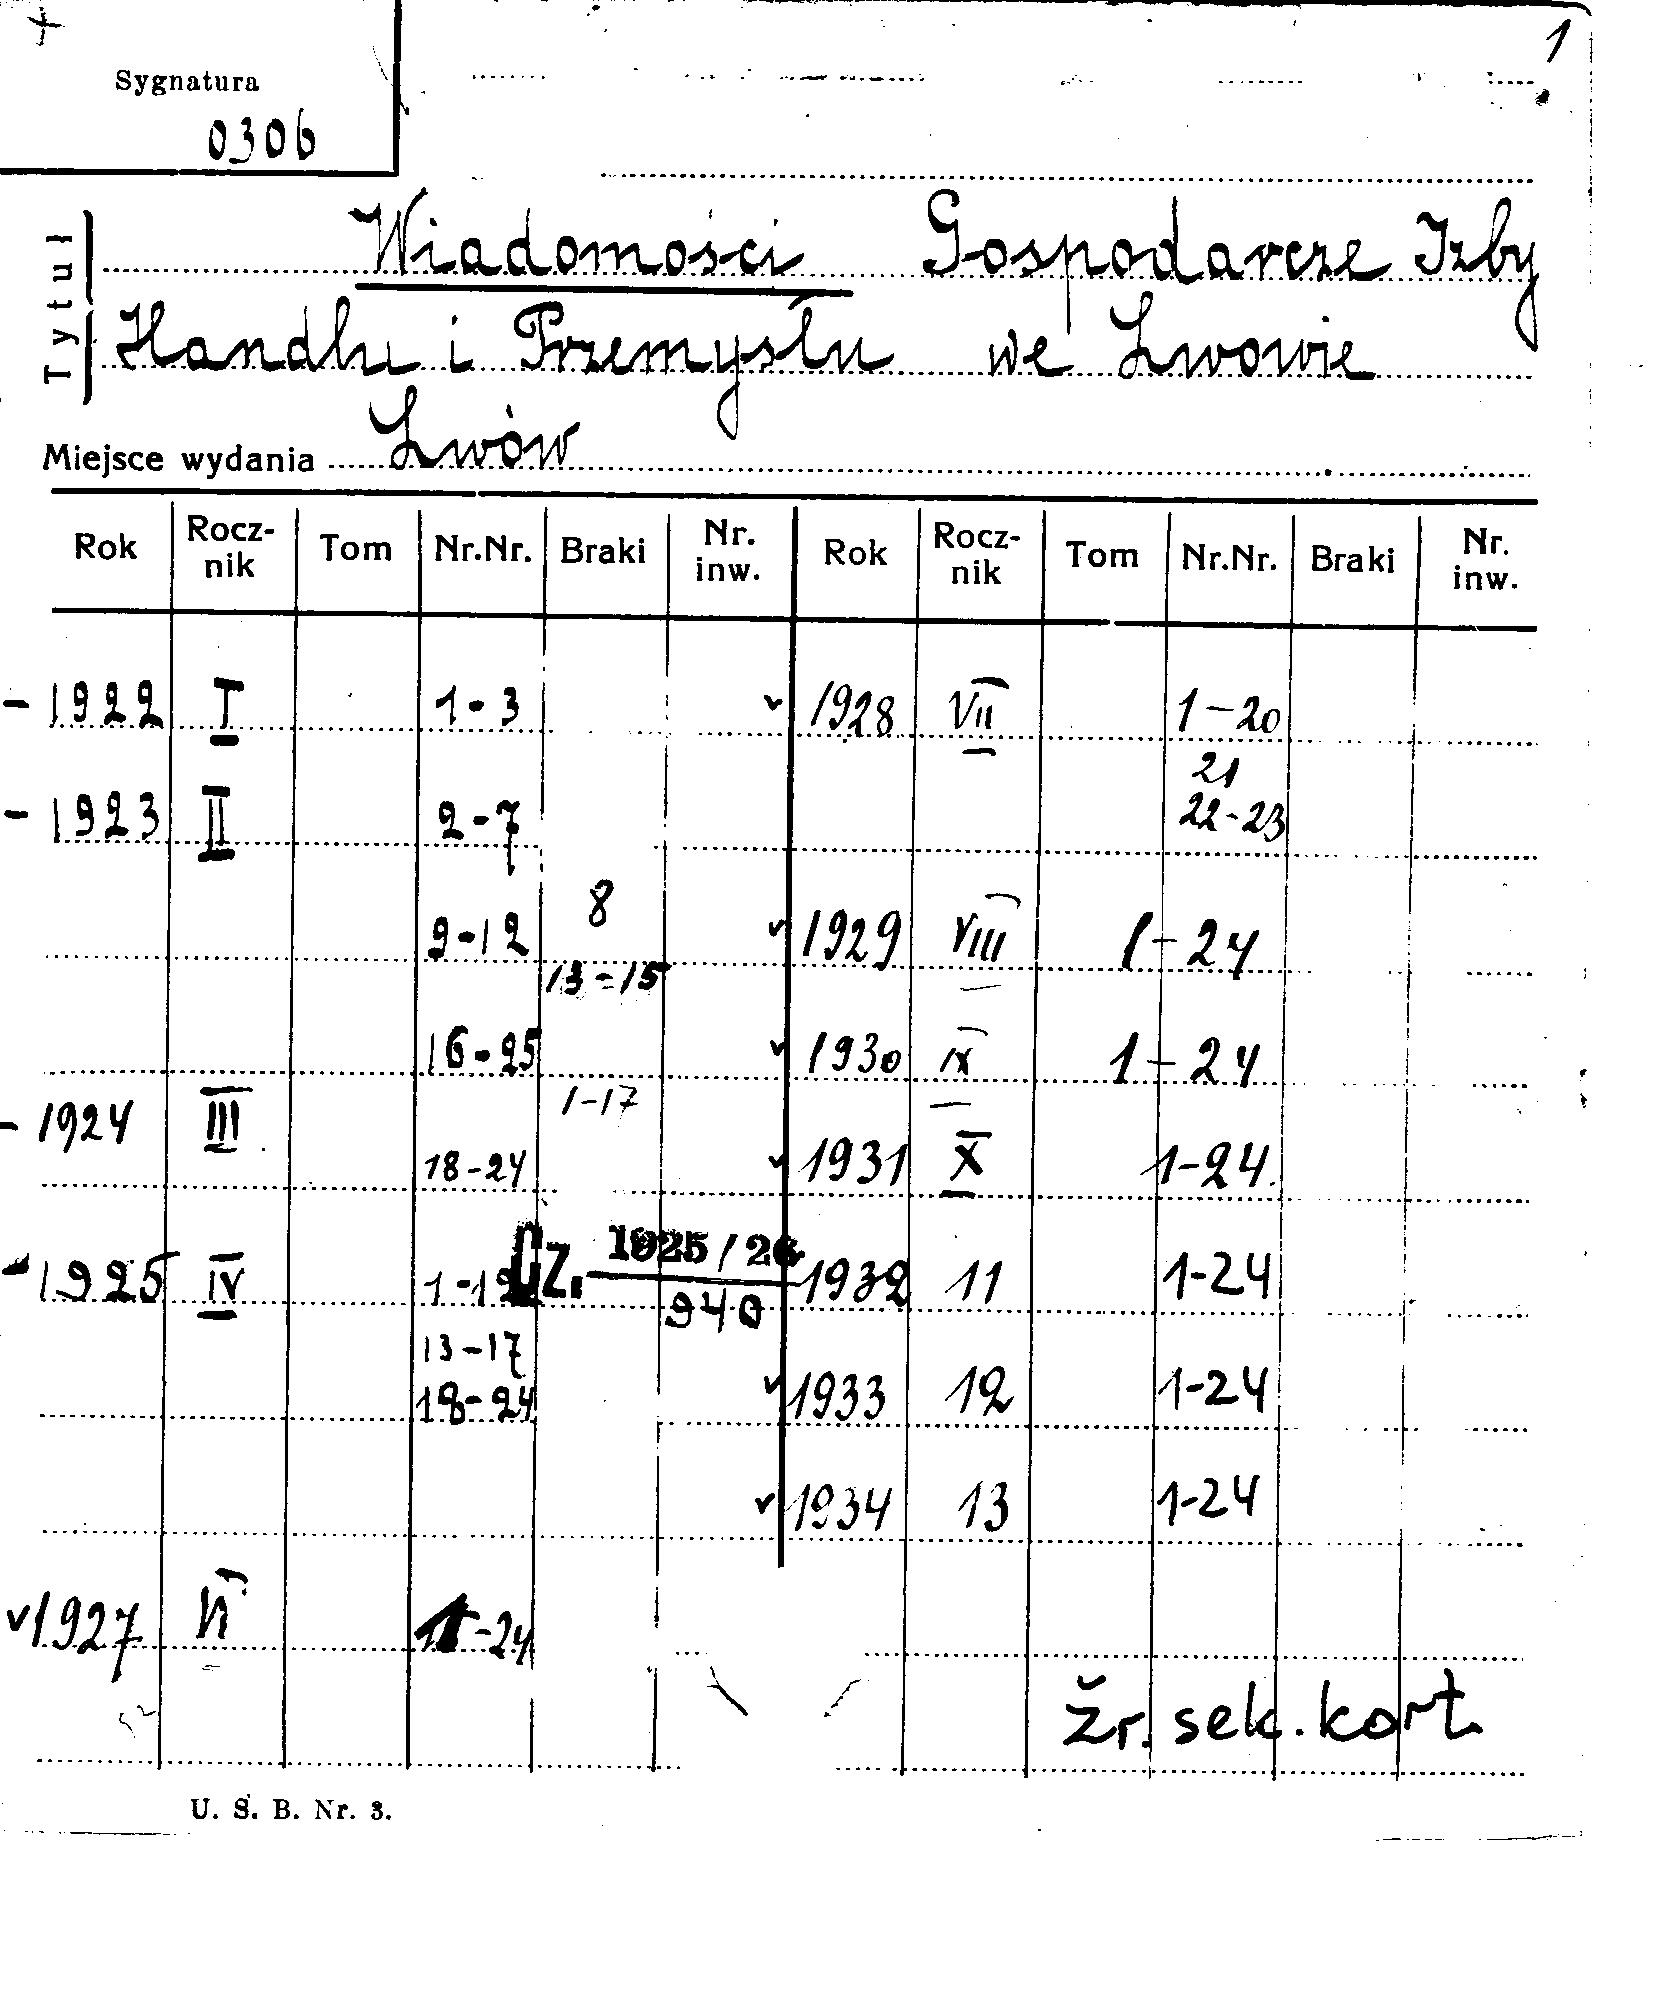 1
Sygnatura
0306
Tytuł
Wiadomości Gospodarcze Izby
Handlu i Przemysłu we Lwowie
Miejsce wydania Lwów
Rok Rocz-nik Tom Nr.Nr. Braki Nr. inw. Rok Rocz-nik Tom Nr.Nr. Braki Nr. inw.
- 1922 I 1-3 v 1928 VII 1-20
21
- 1923 II 2-7 22-23
8
9-12 v 1929 VIII 1-24
13-15
16-25 v 1930 IX 1-24
1-17
- 1924 III
18-24 v 1931 X 1-24
Cz. 1925/26
- 1925 IV 1-12 1932 11 1-24
940
13-17
18-24 v 1933 12 1-24
v 1934 13 1-24
v 1927 VI 1-24
Źr. sek. kort.
U. S. B. Nr. 3.